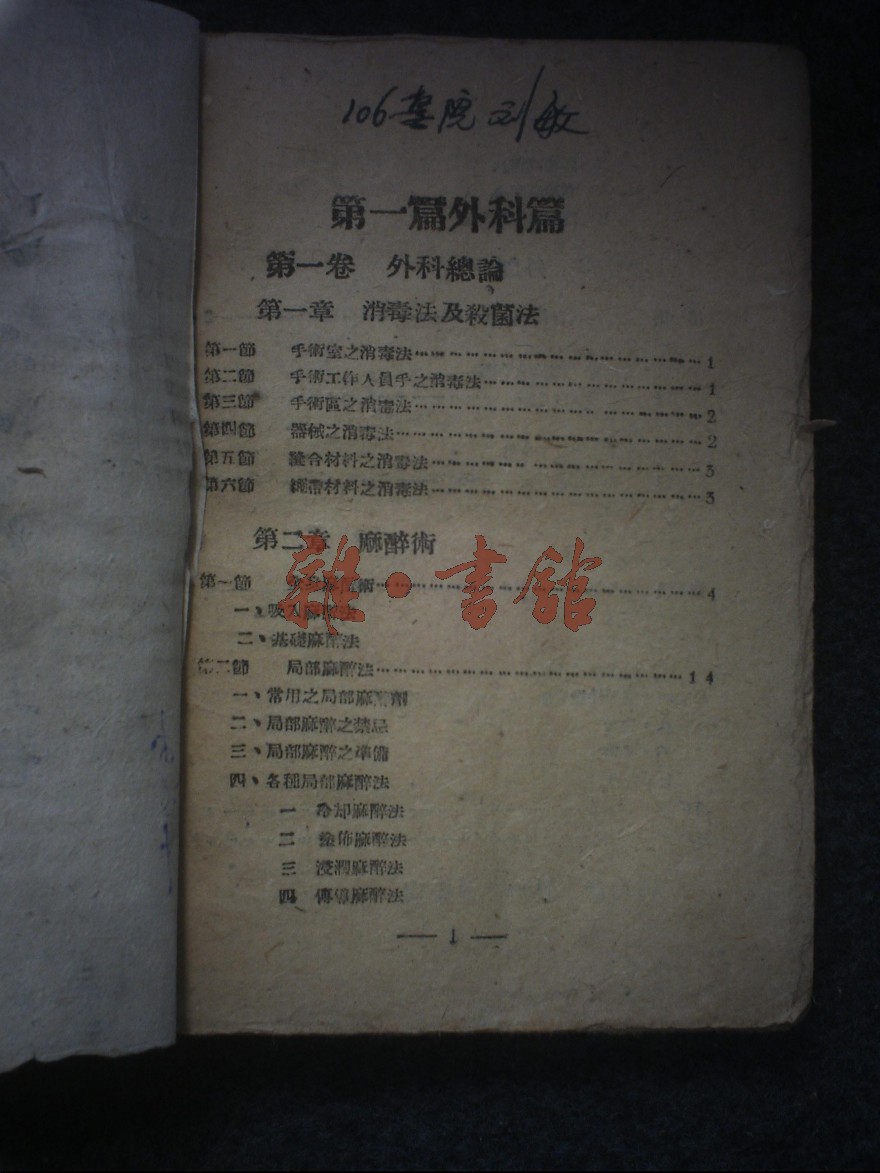 106 医院 刘敏
第一篇外科篇
第一卷 外科總論
第一章 消毒法及殺菌法
第一節 手術室之消毒法……………………………1
第二節 手術工作人員手之消毒法……………………1
第三節 手術區之消毒法……………………………2
第四節 器械之消毒法………………………………2
第五節 縫合材料之消毒法…………………………3
第六節 繃帶材料之消毒法…………………………3
第二章 麻醉術
第一節 術……………………………4
一、吸入麻醉法
二、基礎麻醉法
第二節 局部麻醉法……………………………14
一、常用之局部麻醉劑
二、局部麻醉之禁忌
三、局部麻醉之準備
四、各種局部麻醉法
一 冷却麻醉法
二 塗佈麻醉法
三 浸潤麻醉法
四 傳導麻醉法
— 1 —
雜·書舘